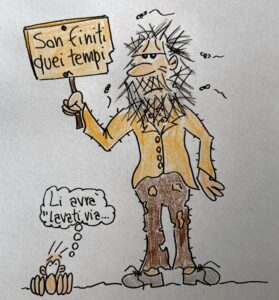 Son finiti
quei tempi
Li avrà
"lavati via...